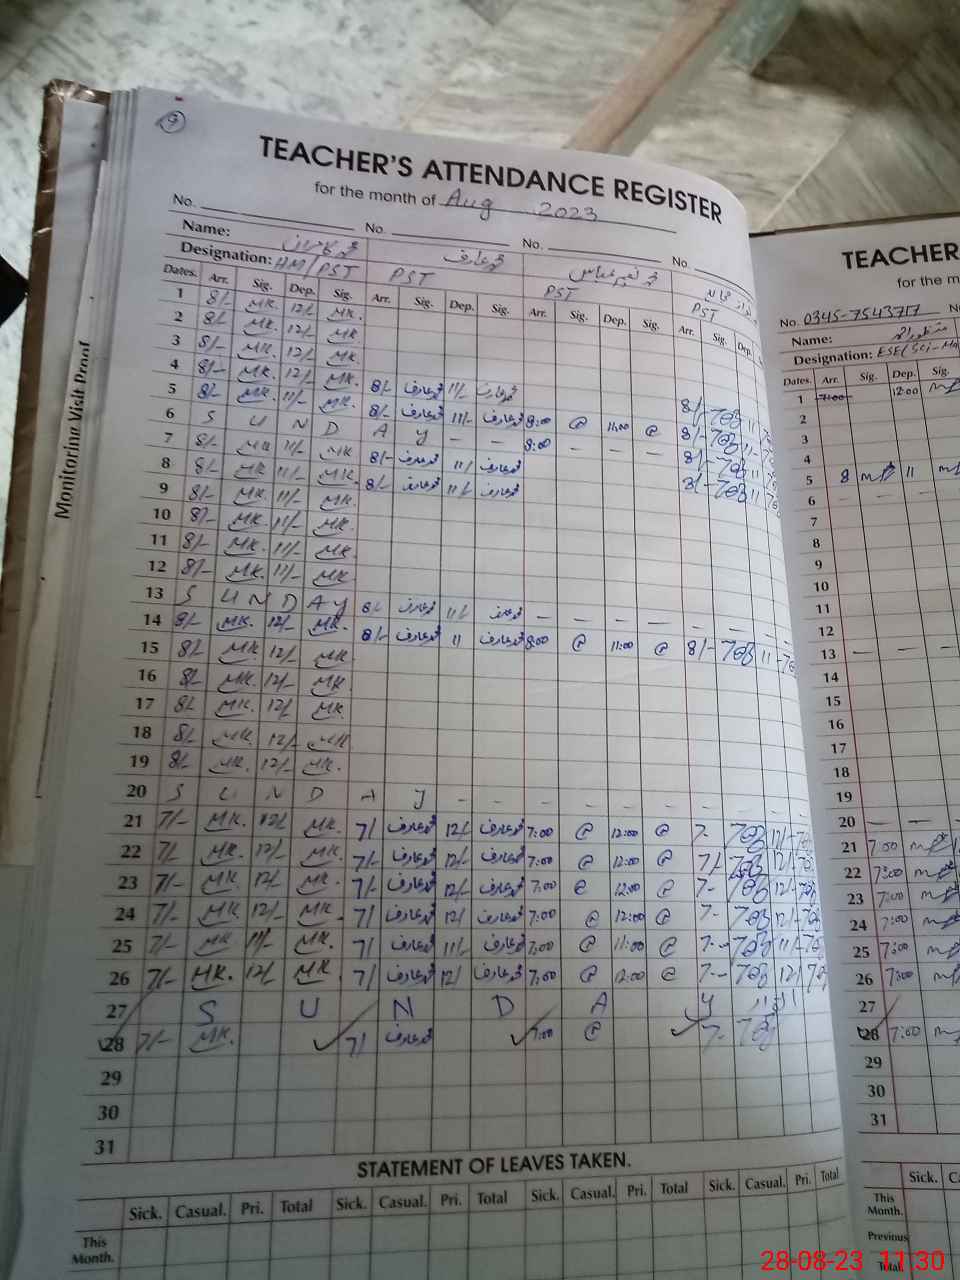 9
TEACHER'S ATTENDANCE REGISTER
for the month of Aug 2023
No. No. No. No.
Name: محمد عارف
Designation: HM/PST PST PST PST
Dates. Arr. Sig. Dep. Sig. Arr. Sig. Dep. Sig. Arr. Sig. Dep. Sig. Arr. Sig. Dep.
1 8/- MK. 12/- MK.
2 8/- MK. 12/- MK
3 8/- MK. 12/- MK
4 8/- MK. 12/- MK. 8/- محمد عارف 11/- محمد عارف 8/- 11
5 8/- MK. 11/- MK. 8/- محمد عارف 11/- محمد عارف 8:00 @ 11:00 @ 8/- 11
6 S U N D A Y - - 8:00 - - - 8/- 11
7 8/- MK 11/- MK 8/- محمد عارف 11/ محمد عارف 8/- 11
8 8/- MK 11/- MK. 8/- محمد عارف 11/- محمد عارف
9 8/- MK. 11/- MK.
10 8/- MK. 11/- MK.
11 8/- MK. 11/- MK.
12 8/- MK. 11/- MK
13 S U N D A Y 8/- محمد عارف 11/- محمد عارف - - - - - - - -
14 8/- MK. 12/- MK. 8/- محمد عارف 11 محمد عارف 8:00 @ 11:00 @ 8/- 11
15 8/ MK 12/- MK
16 8/ MK. 12/- MK.
17 8/ MK. 12/ MK.
18 8/- MK. 12/- MK
19 8/- MK. 12/- MK.
20 S U N D A Y - - - - - - - - - -
21 7/- MK. 12/ MK. 7/ محمد عارف 12/ محمد عارف 7:00 @ 12:00 @ 7- 12/-
22 7/ MK. 12/- MK. 7/- محمد عارف 12/- محمد عارف 7:00 @ 12:00 @ 7/- 12/-
23 7/- MK. 12/- MK. 7/- محمد عارف 12/- محمد عارف 7:00 @ 12:00 @ 7- 12/-
24 7/- MK. 12/- MK. 7/ محمد عارف 12/ محمد عارف 7:00 @ 12:00 @ 7- 12/-
25 7/- MK 11/- MK. 7/ محمد عارف 11/- محمد عارف 7:00 @ 11:00 @ 7- 11/-
26 7/- MK. 12/- MK 7/ محمد عارف 12/ محمد عارف 7:00 @ 12:00 @ 7- 12/
27 S U N D A Y
28 7/- MK. 7/ محمد عارف 7:00 @ 7-
29
30
31
STATEMENT OF LEAVES TAKEN.
Sick. Casual. Pri. Total Sick. Casual. Pri. Total Sick. Casual. Pri. Total Sick. Casual. Pri. Total
This
Month.
Monitoring Visit Proof
TEACHER
for the m
No. 0345-7543717
Name:
Designation: ESE(Sci-Ma
Dates. Arr. Sig. Dep. Sig.
1 7:00 12:00
2
3
4
5 8 11
6 - - - -
7
8
9
10
11
12
13 - - -
14
15
16
17
18
19
20 - - -
21 7:00
22 7:00
23 7:00
24 7:00
25 7:00
26 7:00
27
28 7:00
29
30
31
Sick.
This
Month.
Previous
Total.
28-08-23 11:30